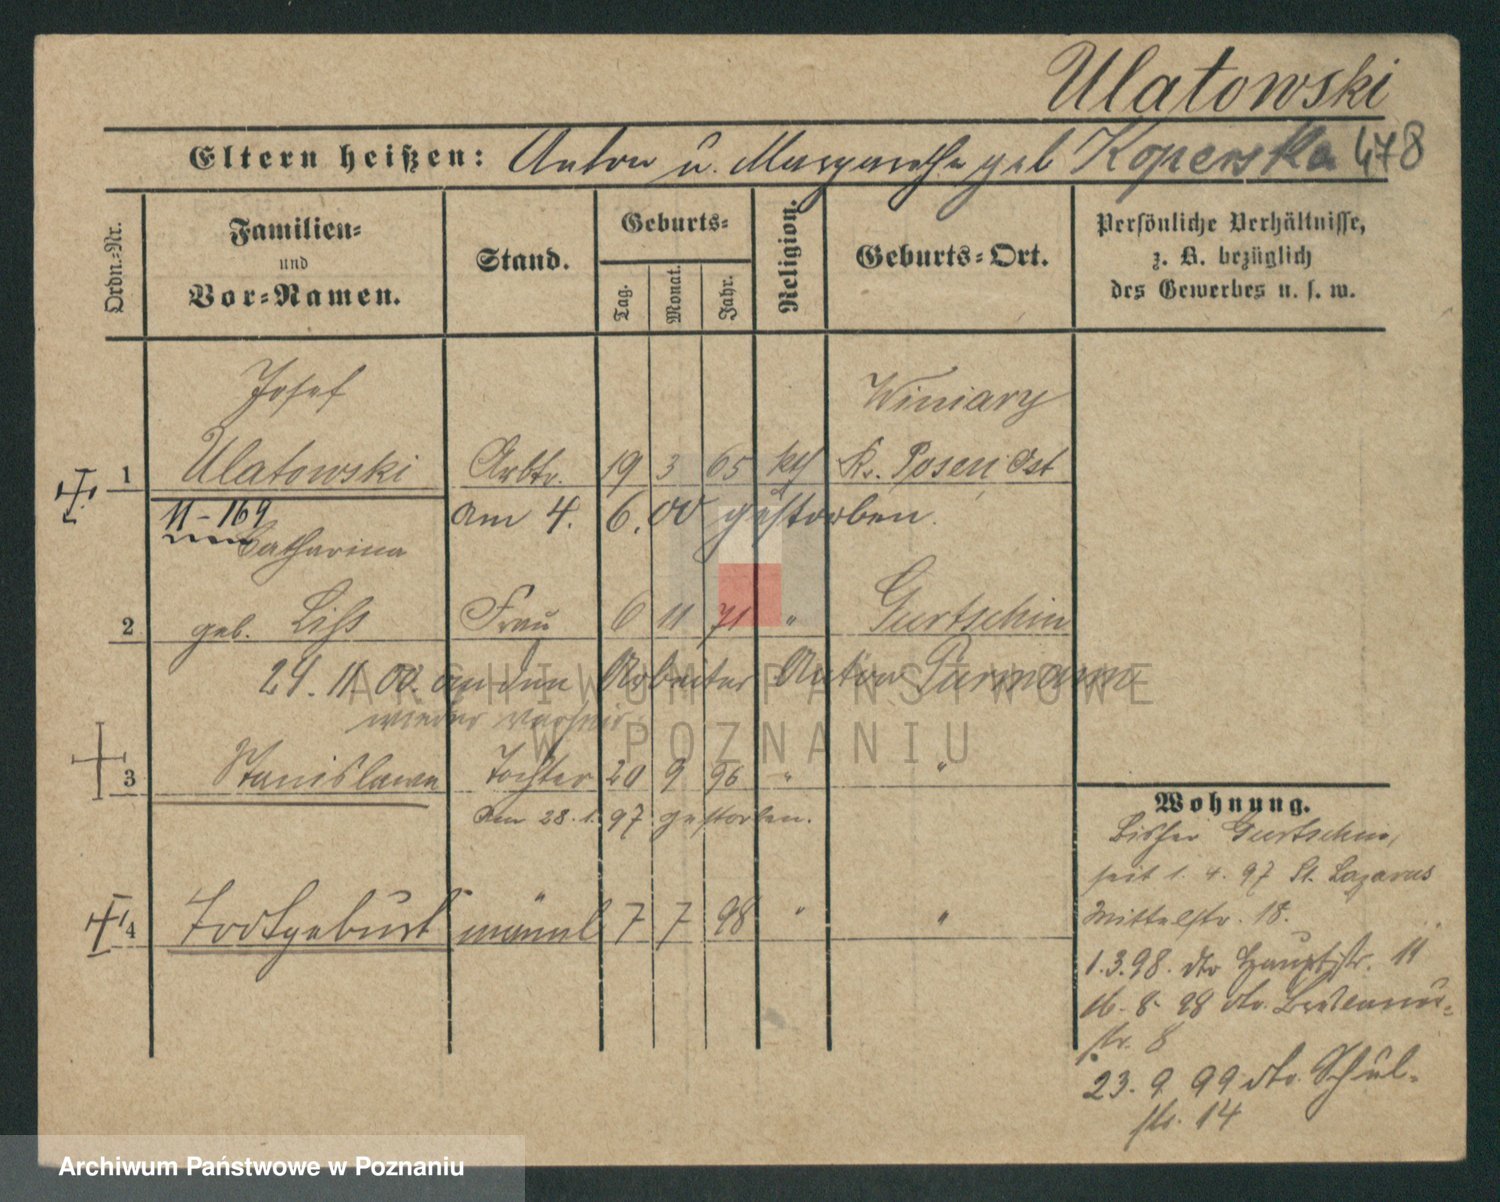 Ulatowski
Eltern heißen: Anton u. Margarethe geb Koperska 478
Ordn.-Nr.
Familien-
und
Vor-Namen.
Stand.
Geburts-
Tag.
Monat.
Jahr.
Religion.
Geburts-Ort.
Persönliche Verhältnisse,
z. B. bezüglich
des Gewerbes u. s. w.
Josef Winiary
1 Ulatowski Arbtr. 19 3 65 kth Kr. Posen Ost
11-169 am 4. 6. 00 gestorben.
Catharina
2 geb. Liss Frau 6 11 71 " Gurtschin
11. 00. an den Arbeiter Anton Purmann
wieder verheir.
3 Stanislawa Tochter 20 9 96 " "
Am 28. 1. 97 gestorben.
4 Todtgeburt männl 7 7 98 " "
Wohnung.
Bisher Gurtschin,
seit 1. 4. 97 St. Lazarus
Mittelstr. 18.
1.3.98. dto Hauptstr. 11
16. 8. 98 dto.
str. 8
23. 9 99 dto. Schul-
str. 14
ARCHIWUM PAŃSTWOWE
W POZNANIU
Archiwum Państwowe w Poznaniu